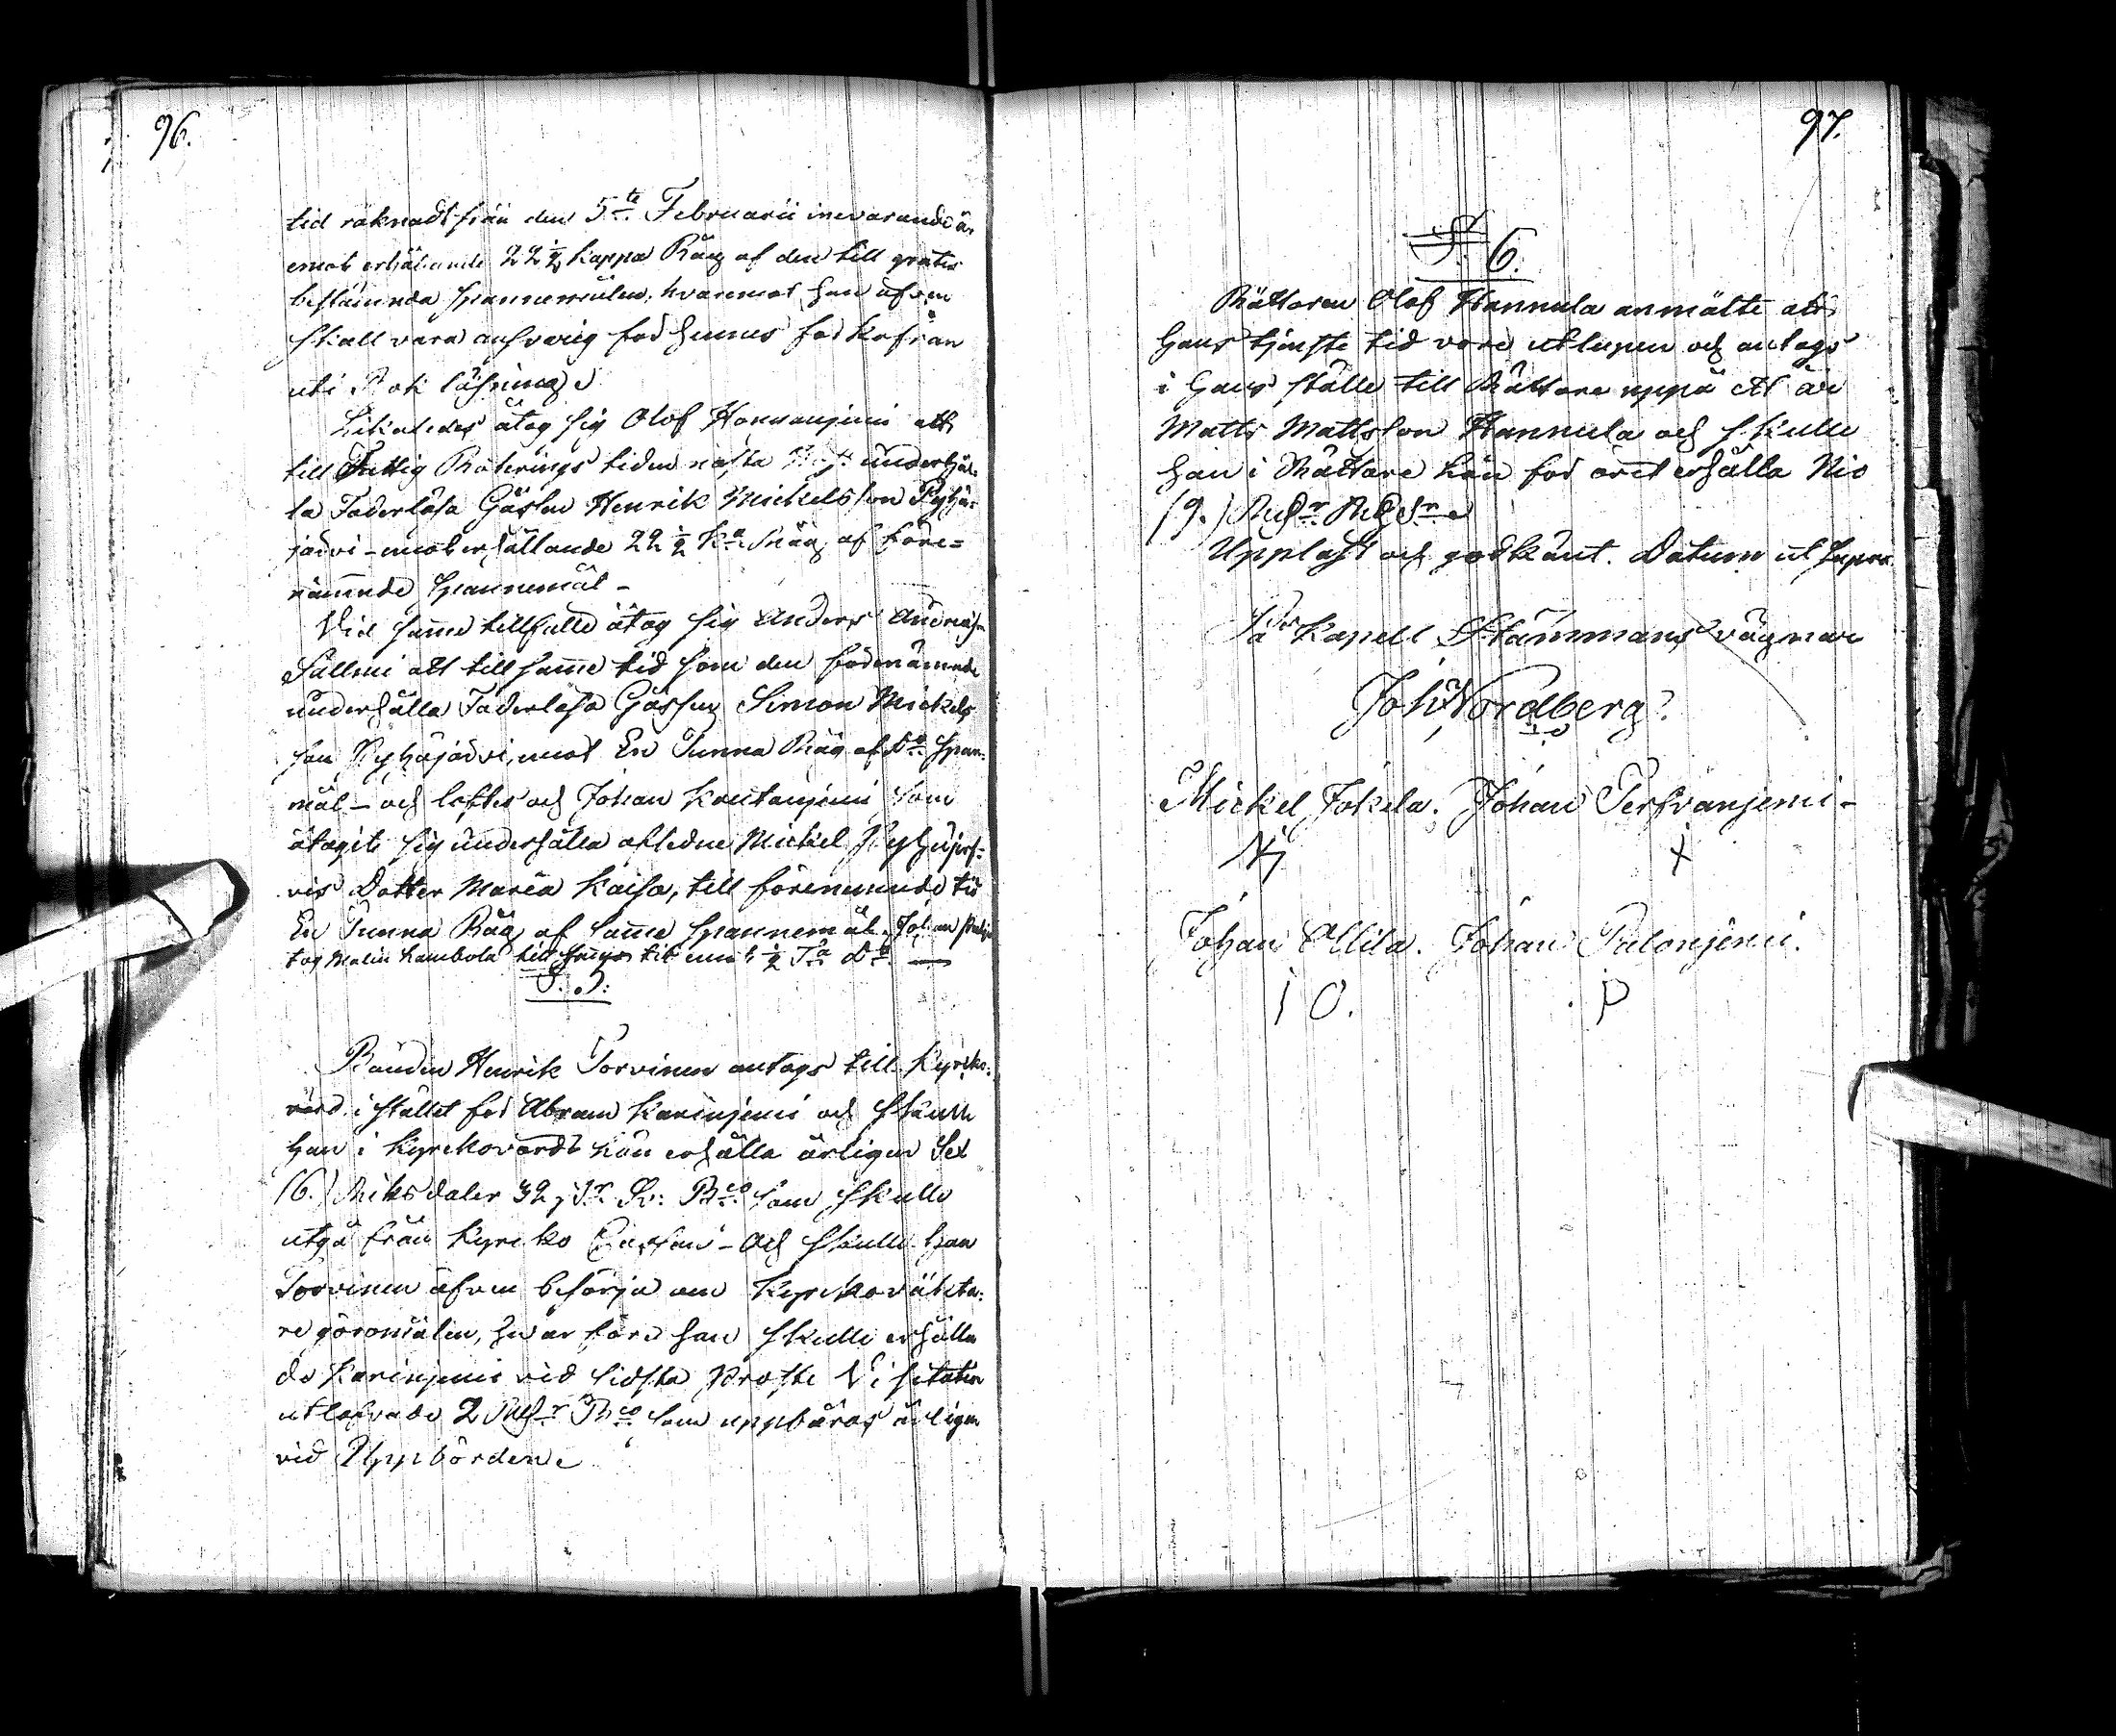 96.
tid räknadt från den 5te Februarii innevarande år
emot erhållande 22 1/2 kappa Råg af den till
bestämda spannemålen, hvaremot han äfven
skall vara ansvarig för hennes för kofrån
uti
Likaledes åtog sig Olof att
till Fattig Roterings tiden nästa underhål-
la Faderlösa Gåssen Henrik Mickelsson Pyhä-
järvi - emot erhållande 22 1/2 ka Råg af före=
nämnde spannemål -
Vid samme tillfälle åtog sig Anders Andersson
att till samme tid som den förenämnde
underhålla Faderlösa Gåssen Simon Mickels
son Pyhäjärvi, emot En Tunna Råg af do span-
mål - och löftes och Johan Koutanjemi som
åtagit sig underhålla afledne Mickel Pyhäjerf-
vis Dotter Maria Kaisa, till förenemnde tid
En Tunna Råg af samme spannemål. Johan
tog Malin Kambola till samma tid emot 1/2 Ta do. —
§. 5:
Bonden Henrik Torvinen antogs till Kyrko-
värd i stället för Abram Karinjemi och skulle
han i Kyrkovärds lön erhålla årligen Sex
(6.) Riksdaler 32 Bco som skulle
utgå från Kyrko Cassan - och skulle han
Torvinen äfven besörja om Kyrkoväkta-
re göromålen, hvarföre han skulle erhålla
de Karinjemi vid sidsta Prosta Visitation
utlofvade 2 Rdr Bco som uppbäras årligen
vid Uppbörden
97.
§. 6.
Rättaren Olof Hannula anmälte att
hans tjenste tid vore utlupen och antogs
i hans ställe till Rättare uppå Ett år
Matts Mattsson Hannula och skulle
han i Rättare lön för året erhålla Nio
(9.) Rdr Rgdr
Uppläst och godkänt. Datum ut supra
På Kapell Stämmans vägnar
Joh: Nordberg
Mickel Jokela. Johan Perfvanjemi -
X
Johan Ollila. Johan Palonjemi.
I O. P